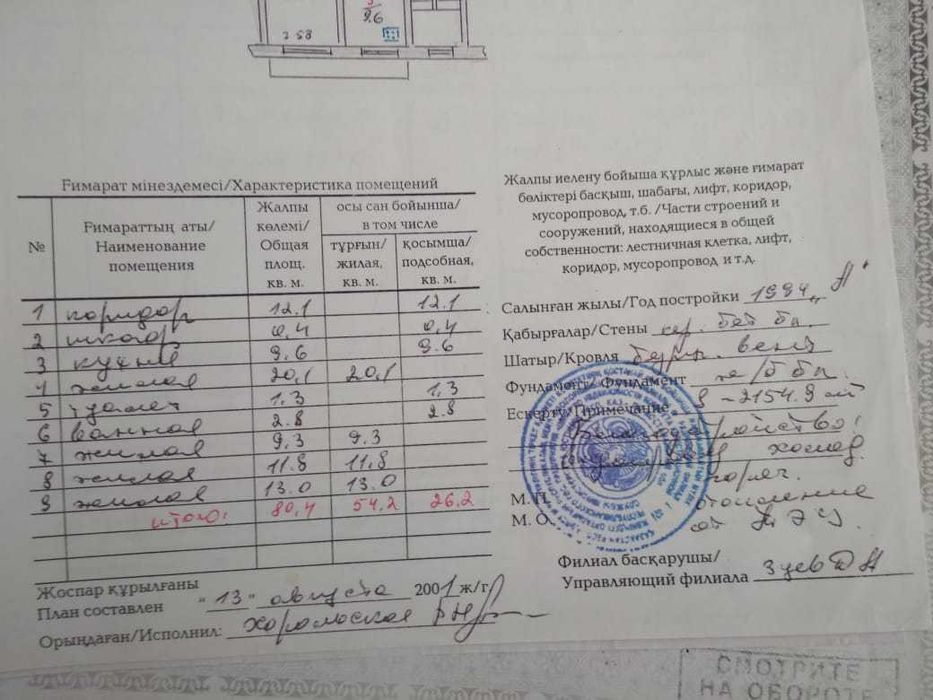 9.6
2.58
Ғимарат мінездемесі/Характеристика помещений
№
Ғимараттың аты/
Наименование
помещения
Жалпы
көлемі/
Общая
площ.
кв. м.
осы сан бойынша/
в том числе
тұрғын/
жилая,
кв. м.
қосымша/
подсобная,
кв. м.
1 коридор 12.1 12.1
2 шкаф 0,4 0,4
3 кухня 9.6 9.6
4 жилая 20,1 20,1
5 туалет 1,3 1,3
6 ванная 2.8 2.8
7 жилая 9.3 9.3
8 жилая 11.8 11,8
9 жилая 13.0 13.0
итого: 80,4 54,2 26.2
Жоспар құрылғаны
План составлен "13" августа 2001 ж/г
Орындаған/Исполнил:
Жалпы иелену бойыша құрлыс және ғимарат
бөліктері басқыш, шабағы, лифт, коридор,
мусоропровод, т.б. /Части строений и
сооружений, находящиеся в общей
собственности: лестничная клетка, лифт,
коридор, мусоропровод и т.д.
Салынған жылы/Год постройки 1994
Қабырғалар/Стены кер. бет бл.
Шатыр/Кровля
Фундамент/ Фундамент ж/б бл.
Ескерту/Примечание
Благоустройство:
холод.
горяч.
М. П. отопление
М. О. от
Филиал басқарушы/
Управляющий филиала Зуев
СМОТРИТЕ
НА ОБОРО